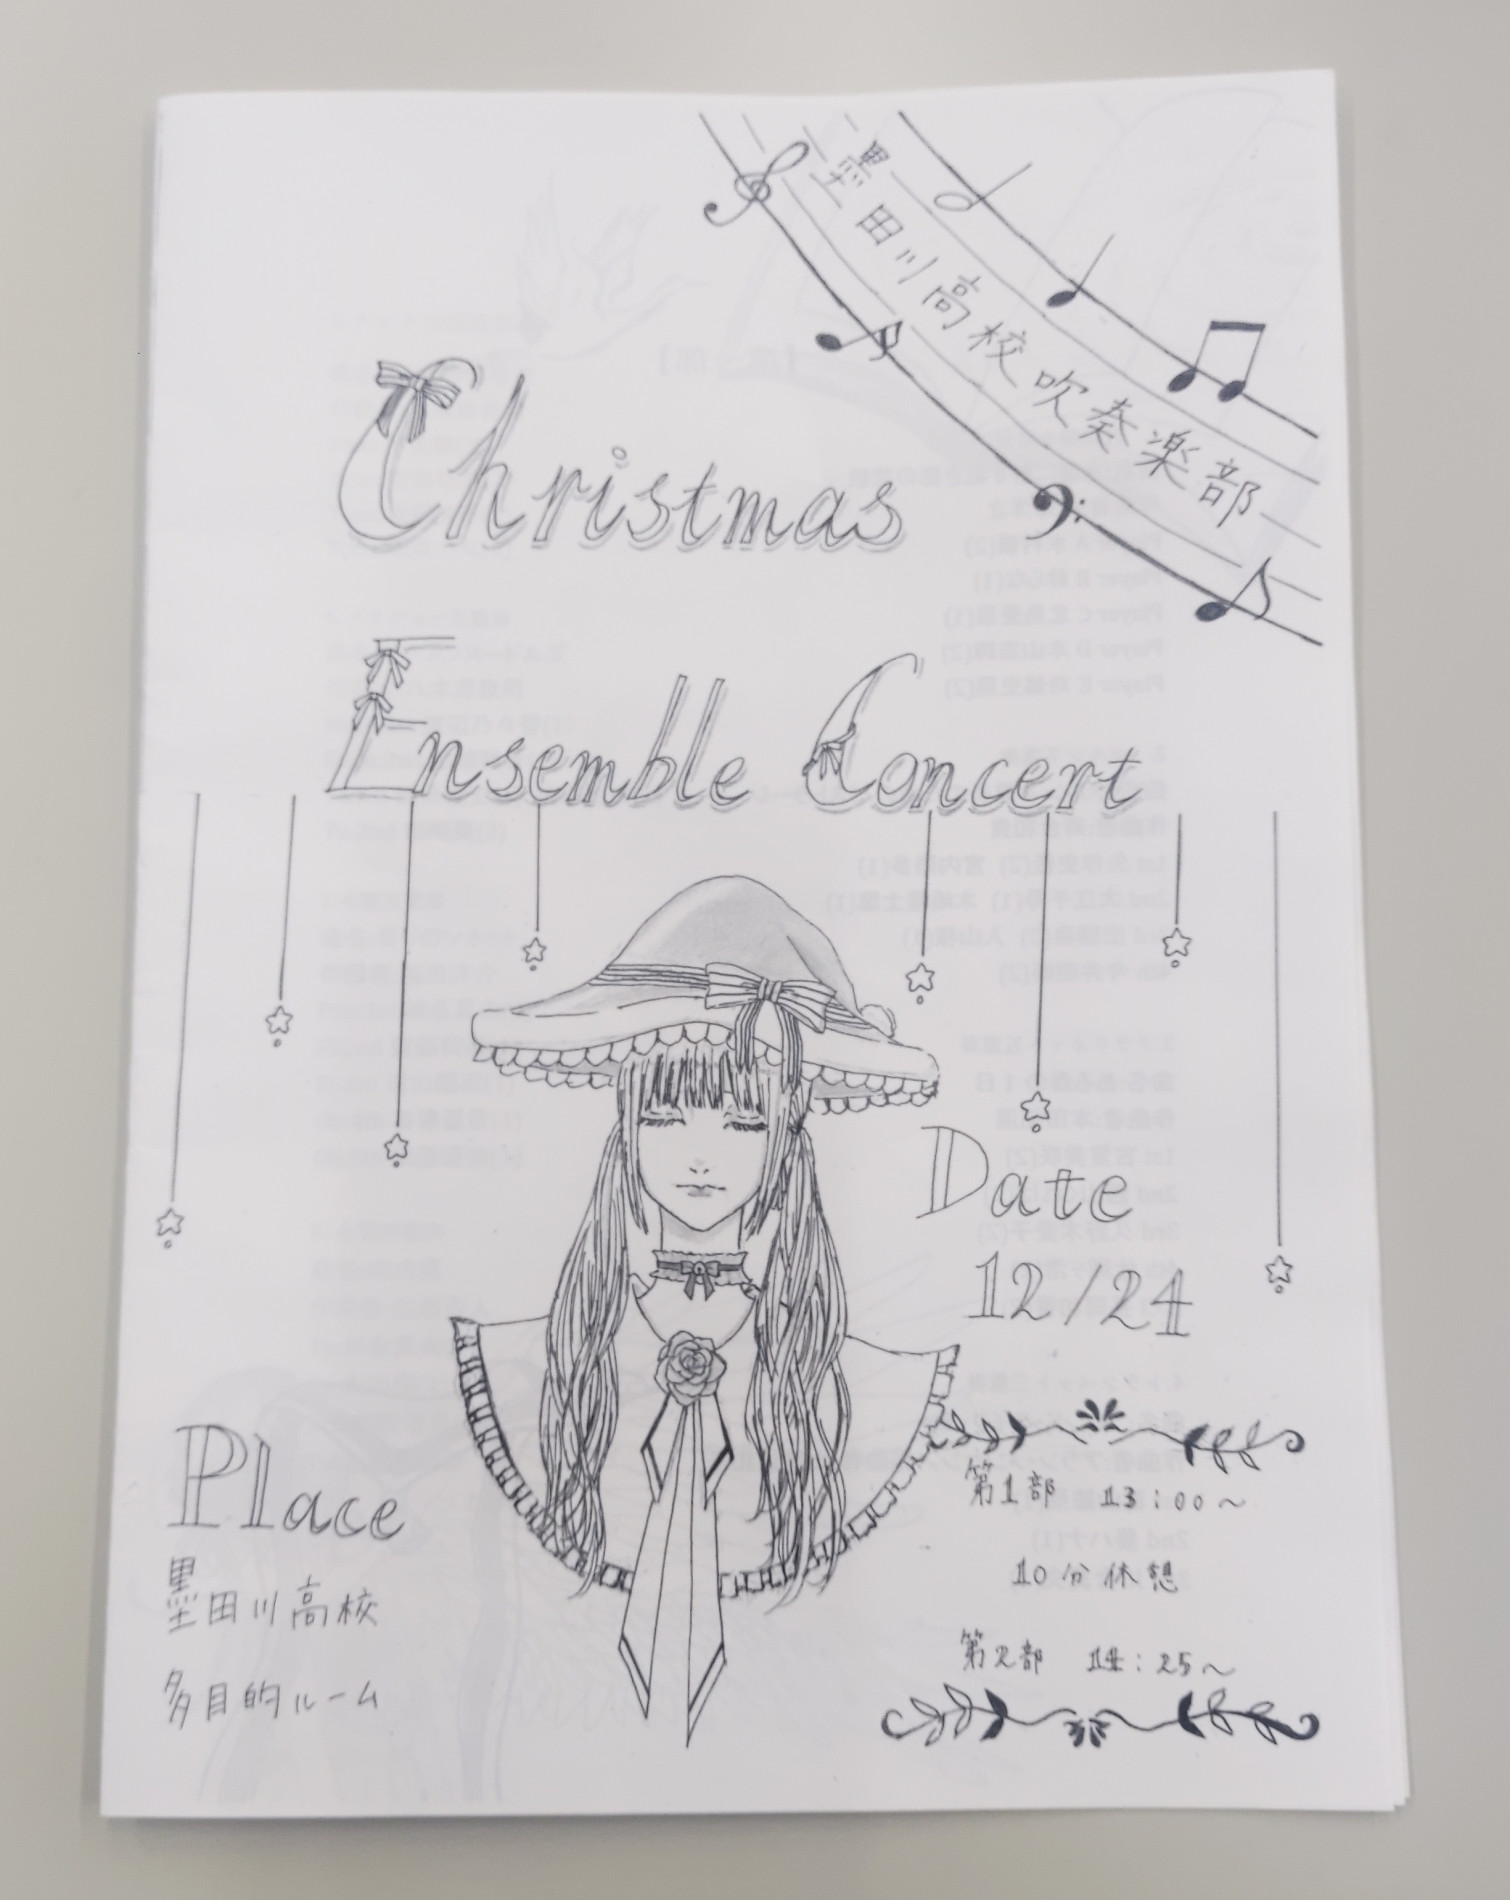 墨田川高校吹奏楽部
Christmas
Ensemble Concert
Date
12/24
Place
墨田川高校
多目的ルーム
第1部 13:00~
10分休憩
第2部 14:25~